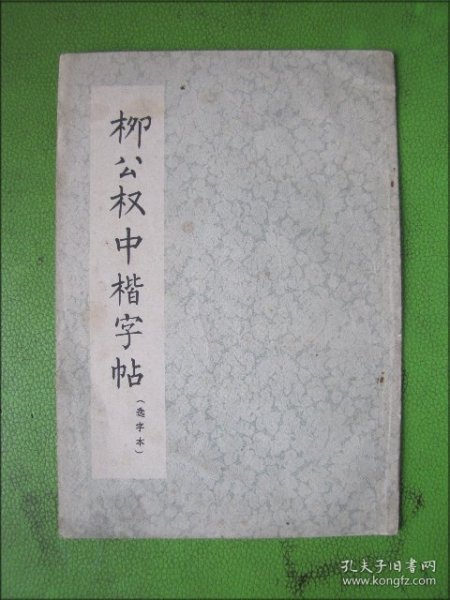 柳公权中楷字帖
(选字本)
孔夫子旧书网
www.kongfz.com